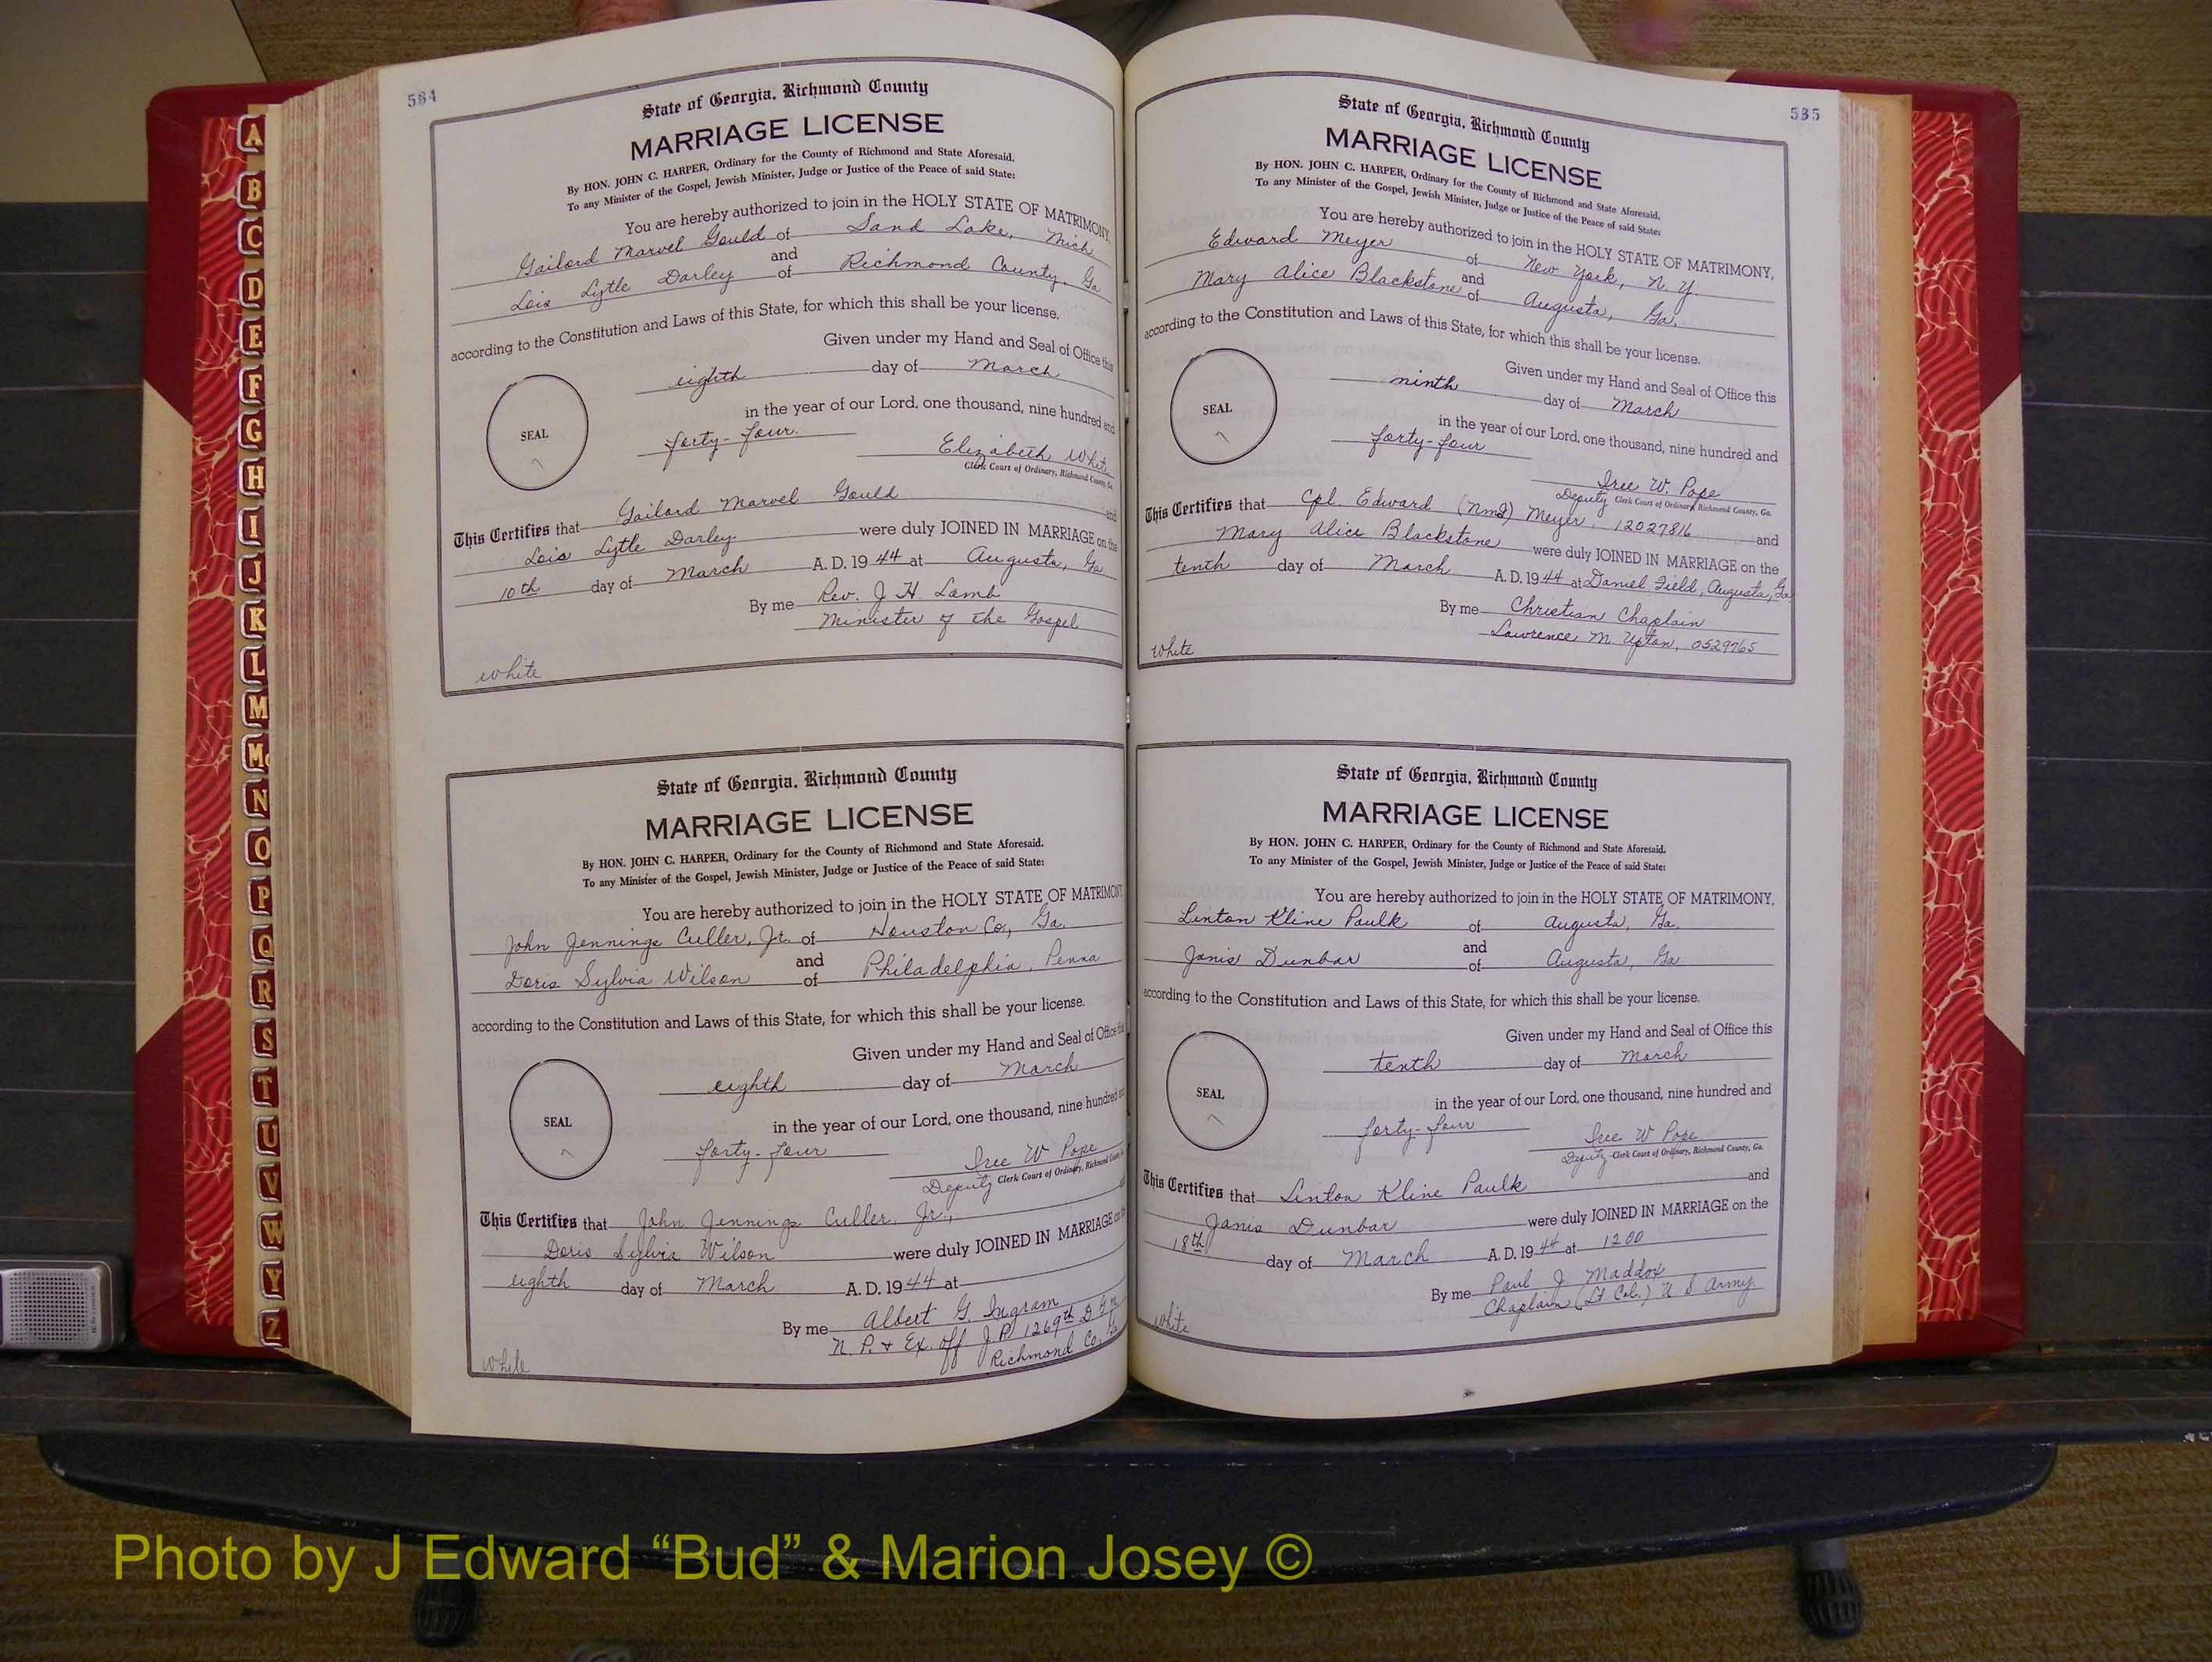 564
State of Georgia, Richmond County
MARRIAGE LICENSE
By HON. JOHN C. HARPER, Ordinary for the County of Richmond and State Aforesaid.
To any Minister of the Gospel, Jewish Minister, Judge or Justice of the Peace of said State:
You are hereby authorized to join in the HOLY STATE OF MATRIMONY,
Gailord Marvel Gould of Sand Lake, Mich
and
Lois Lytle Darley of Richmond County, Ga
according to the Constitution and Laws of this State, for which this shall be your license.
Given under my Hand and Seal of Office this
eighth day of March
in the year of our Lord, one thousand, nine hundred and
SEAL
forty-four.
Elizabeth White
Clerk Court of Ordinary, Richmond County, Ga.
This Certifies that Gailord Marvel Gould and
Lois Lytle Darley were duly JOINED IN MARRIAGE on the
10th day of March A. D. 19 44 at Augusta, Ga
By me Rev. J H. Lamb
Minister of the Gospel
white
State of Georgia, Richmond County
MARRIAGE LICENSE
By HON. JOHN C. HARPER, Ordinary for the County of Richmond and State Aforesaid.
To any Minister of the Gospel, Jewish Minister, Judge or Justice of the Peace of said State:
You are hereby authorized to join in the HOLY STATE OF MATRIMONY
John Jennings Culler, Jr. of Houston Co., Ga.
and
Doris Sylvia Wilson of Philadelphia, Penna
according to the Constitution and Laws of this State, for which this shall be your license.
Given under my Hand and Seal of Office this
eighth day of March
in the year of our Lord, one thousand, nine hundred and
SEAL
forty-four
Iree W Pope
Deputy Clerk Court of Ordinary, Richmond County
This Certifies that John Jennings Culler, Jr.,
Doris Sylvia Wilson were duly JOINED IN MARRIAGE on
eighth day of March A. D. 19 44 at
By me Albert G. Ingram
N. P. & Ex. off J.P. 1269th D G.M
Richmond Co, Ga
white
535
State of Georgia, Richmond County
MARRIAGE LICENSE
By HON. JOHN C. HARPER, Ordinary for the County of Richmond and State Aforesaid.
To any Minister of the Gospel, Jewish Minister, Judge or Justice of the Peace of said State:
You are hereby authorized to join in the HOLY STATE OF MATRIMONY,
Edward Meyer of New York, N. Y.
and
Mary Alice Blackstone of Augusta, Ga.
according to the Constitution and Laws of this State, for which this shall be your license.
Given under my Hand and Seal of Office this
ninth day of March
SEAL
in the year of our Lord, one thousand, nine hundred and
forty-four
Iree W. Pope
Deputy Clerk Court of Ordinary Richmond County, Ga.
This Certifies that Cpl. Edward (nmi) Meyer, 12027816 and
Mary Alice Blackstone were duly JOINED IN MARRIAGE on the
tenth day of March A. D. 19 44 at Daniel Field, Augusta, Ga.
By me Christian Chaplain
Lawrence M. Upton, 0529765
white
State of Georgia, Richmond County
MARRIAGE LICENSE
By HON. JOHN C. HARPER, Ordinary for the County of Richmond and State Aforesaid.
To any Minister of the Gospel, Jewish Minister, Judge or Justice of the Peace of said State:
You are hereby authorized to join in the HOLY STATE OF MATRIMONY,
Linton Kline Paulk of Augusta, Ga.
and
Janis Dunbar of Augusta, Ga.
according to the Constitution and Laws of this State, for which this shall be your license.
Given under my Hand and Seal of Office this
tenth day of March
SEAL
in the year of our Lord, one thousand, nine hundred and
forty-four
Iree W Pope
Deputy Clerk Court of Ordinary, Richmond County, Ga.
This Certifies that Linton Kline Paulk and
Janis Dunbar were duly JOINED IN MARRIAGE on the
18th day of March A. D. 19 44 at 1200
By me Paul J Maddox
Chaplain (Lt Col.) U S Army.
white
A
B
C
D
E
F
G
H
I
J
K
L
M
Mc
N
O
P
Q
R
S
T
U
V
W
Y
Z
Photo by J Edward “Bud” & Marion Josey ©